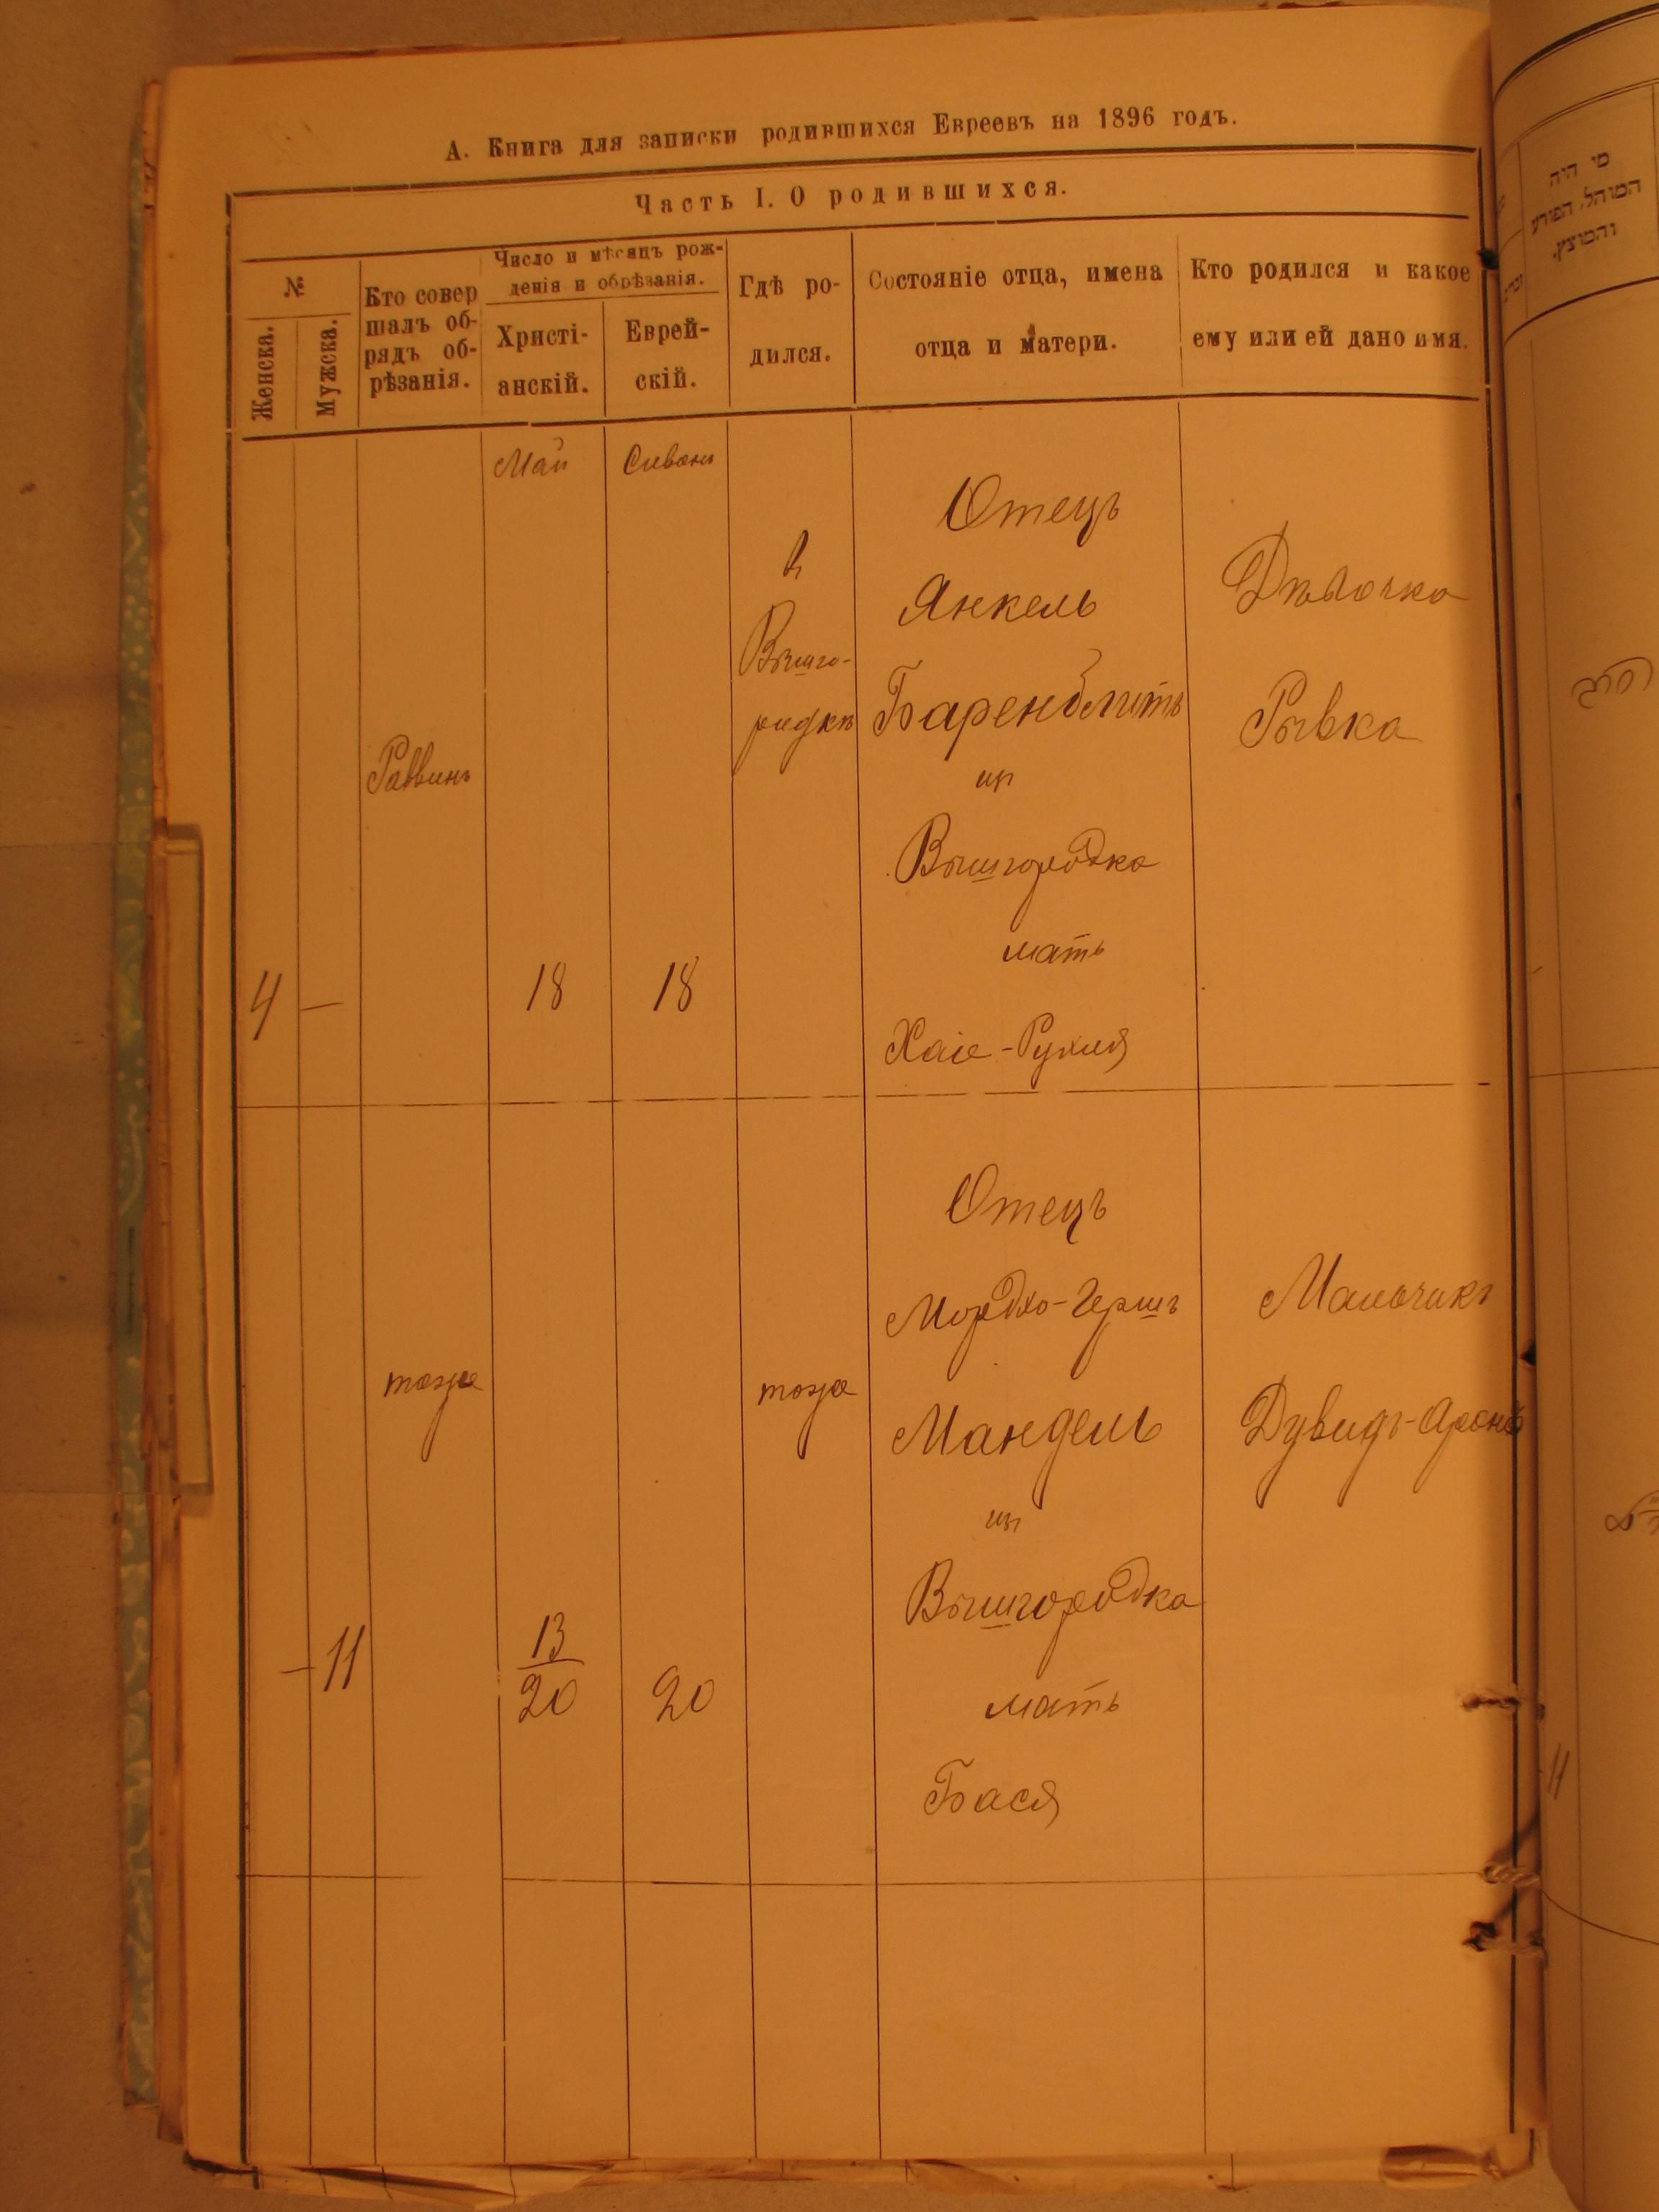 А. Книга для записки родившихся Евреевъ на 1896 годъ.
Часть I. О родившихся.
№
Женска.
Мужска.
Кто совер
шалъ об-
рядъ об-
рѣзанія.
Число и мѣсяцъ рож-
денія и обрѣзанія.
Христі-
анскій.
Еврей-
скій.
Гдѣ ро-
дился.
Состояніе отца, имена
отца и матери.
Кто родился и какое
ему или ей дано имя.
Май
Сивана
4
—
Раввинъ
18
18
в
Вышго-
родкѣ
Отецъ
Янкель
Баренблитъ
из
Вышгородка
мать
Хаіе-Рухля
Дѣвочка
Рывка
—
11
тоже
13
20
20
тоже
Отецъ
Мордхо-Гершъ
Мандель
из
Вышгородка
мать
Бася
Мальчикъ
Дувидъ-Аронъ
מי היה
המוהל, הפורע
והמוצץ.
11